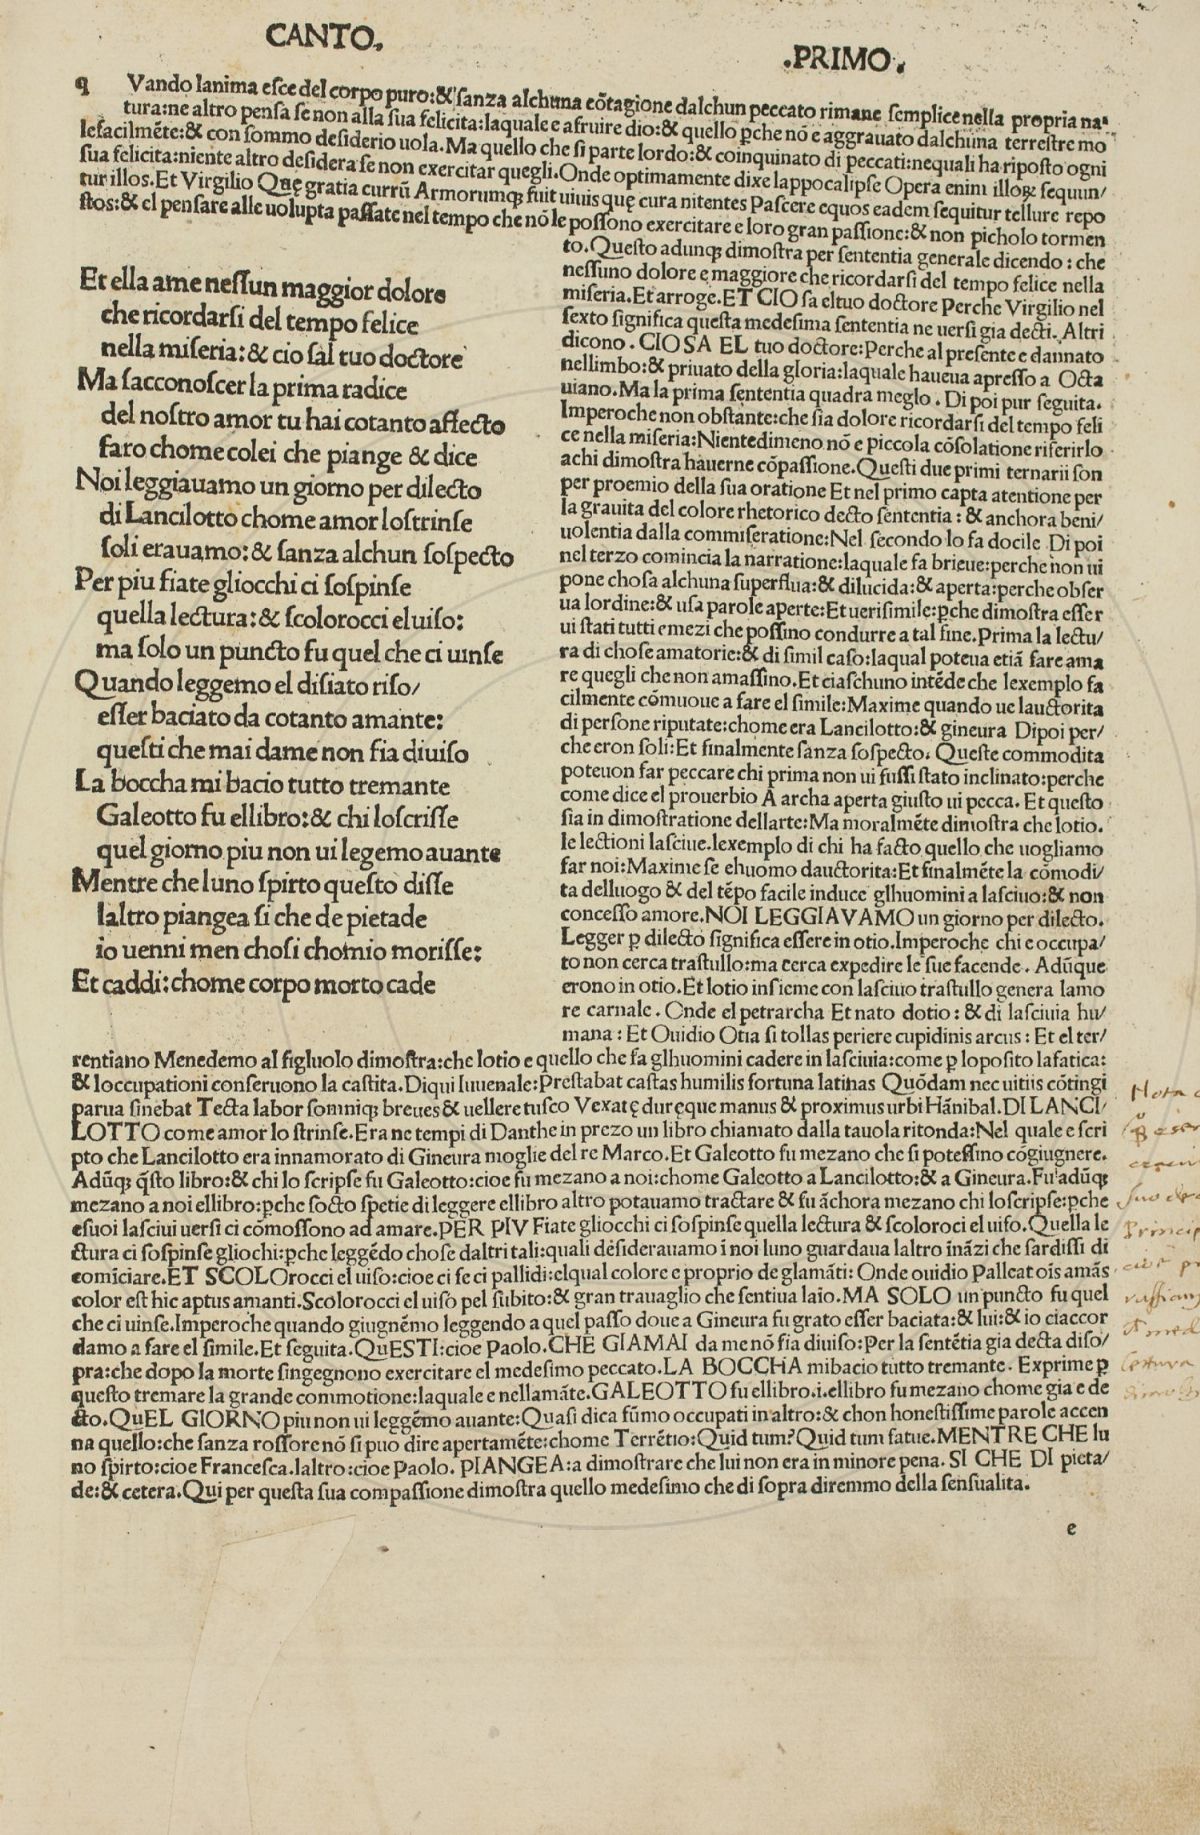 CANTO.
.PRIMO.
q Vando lanima esce del corpo puro:& sanza alchuna cõtagione dalchun peccato rimane semplice nella propria na⸗
tura:ne altro pensa se non alla sua felicita:laquale e a fruire dio:& quello ꝑche nõ e aggrauato dalchuna terrestre mo
le facilmẽte:& con sommo desiderio uola.Ma quello che si parte lordo:& coinquinato di peccati:nequali ha riposto ogni
sua felicita:niente altro desidera se non exercitar quegli.Onde optimamente dixe lappocalipse Opera enim illoꝝ sequun/
tur illos.Et Virgilio Quę gratia currũ Armorumqꝫ fuit uiuis quę cura nitentes Pascere equos eadem sequitur tellure repo
stos:& el pensare alle uolupta passate nel tempo che nõ le possono exercitare e loro gran passione:& non picholo tormen
to.Questo adunqꝫ dimostra per sententia generale dicendo : che
nessuno dolore e maggiore che ricordarsi del tempo felice nella
miseria.Et arroge.ET CIO sa el tuo doctore Perche Virgilio nel
sexto significa questa medesima sententia ne uersi gia decti. Altri
dicono . CIO SA EL tuo doctore:Perche al presente e dannato
nellimbo:& priuato della gloria:laquale haueua apresso a Octa
uiano.Ma la prima sententia quadra meglo . Di poi pur seguita.
Imperoche non obstante:che sia dolore ricordarsi del tempo feli
ce nella miseria:Nientedimeno nõ e piccola cõsolatione riferirlo
achi dimostra hauerne cõpassione.Questi due primi ternarii son
per proemio della sua oratione Et nel primo capta atentione per
la grauita del colore rhetorico decto sententia : & anchora beni/
uolentia dalla commiseratione:Nel secondo lo fa docile Di poi
nel terzo comincia la narratione:laquale fa brieue:perche non ui
pone chosa alchuna superflua:& dilucida:& aperta:perche obser
ua lordine:& usa parole aperte:Et uerisimile:ꝑche dimostra esser
ui stati tutti e mezi che possino condurre a tal fine.Prima la lectu/
ra di chose amatorie:& di simil caso:laqual poteua etiã fare ama
re quegli che non amassino.Et ciaschuno intẽde che lexemplo fa
cilmente cõmuoue a fare el simile:Maxime quando ue lauctorita
di persone riputate:chome era Lancilotto:& gineura Dipoi per/
che eron soli:Et finalmente sanza sospecto. Queste commodita
poteuon far peccare chi prima non ui fussi stato inclinato:perche
come dice el prouerbio A archa aperta giusto ui pecca. Et questo
sia in dimostratione dellarte:Ma moralmẽte dimostra che lotio.
le lectioni lasciue.lexemplo di chi ha facto quello che uogliamo
far noi:Maxime se e huomo dauctorita:Et finalmẽte la cõmodi/
ta delluogo & del tẽpo facile induce glhuomini a lasciuo:& non
concesso amore.NOI LEGGIAVAMO un giorno per dilecto.
Legger ꝑ dilecto significa essere in otio.Imperoche chi e occupa/
to non cerca trastullo:ma cerca expedire le sue facende . Adũque
erono in otio.Et lotio insieme con lasciuo trastullo genera lamo
re carnale . Onde el petrarcha Et nato dotio : & di lasciuia hu/
mana : Et Ouidio Otia si tollas periere cupidinis arcus : Et el ter/
Et ella ame nessun maggior dolore
che ricordarsi del tempo felice
nella miseria:& cio sal tuo doctore
Ma sacconoscer la prima radice
del nostro amor tu hai cotanto affecto
faro chome colei che piange & dice
Noi leggiauamo un giorno per dilecto
di Lancilotto chome amor lostrinse
soli erauamo:& sanza alchun sospecto
Per piu fiate gliocchi ci sospinse
quella lectura:& scolorocci el uiso:
ma solo un puncto fu quel che ci uinse
Quando leggemo el disiato riso/
esser baciato da cotanto amante:
questi che mai dame non fia diuiso
La boccha mi bacio tutto tremante
Galeotto fu ellibro:& chi loscrisse
quel giorno piu non ui legemo auante
Mentre che luno spirto questo disse
laltro piangea si che de pietade
io uenni men chosi chomio morisse:
Et caddi:chome corpo morto cade
rentiano Menedemo al figluolo dimostra:che lotio e quello che fa glhuomini cadere in lasciuia:come ꝑ loposito lafatica:
& loccupationi conseruono la castita.Diqui Iuuenale:Prestabat castas humilis fortuna latinas Quõdam nec uitiis cõtingi
parua sinebat Tecta labor somniqꝫ breues & uellere tusco Vexatę duręque manus & proximus urbi Hãnibal.DI LANCI/
LOTTO come amor lo strinse.Era ne tempi di Danthe in prezo un libro chiamato dalla tauola ritonda:Nel quale e scri
pto che Lancilotto era innamorato di Gineura moglie del re Marco.Et Galeotto fu mezano che si potessino cõgiugnere.
Adũqꝫ q̃sto libro:& chi lo scripse fu Galeotto:cioe fu mezano a noi:chome Galeotto a Lancilotto:& a Gineura.Fu adũqꝫ
mezano a noi ellibro:ꝑche socto spetie di leggere ellibro altro potauamo tractare & fu ãchora mezano chi loscripse:ꝑche
esuoi lasciui uersi ci cõmossono ad amare.PER PIV Fiate gliocchi ci sospinse quella lectura & scoloroci el uiso.Quella le
ctura ci sospinse gliochi:ꝑche leggẽdo chose daltri tali:quali desiderauamo ĩ noi luno guardaua laltro ĩnãzi che sardissi di
comĩciare.ET SCOLOrocci el uiso:cioe ci fe ci pallidi:elqual colore e proprio de glamãti: Onde ouidio Palleat oĩs amãs
color est hic aptus amanti.Scolorocci el uiso pel subito:& gran trauaglio che sentiua laio.MA SOLO un puncto fu quel
che ci uinse.Imperoche quando giugnẽmo leggendo a quel passo doue a Gineura fu grato esser baciata:& lui:& io ciaccor
damo a fare el simile.Et seguita.QuESTI:cioe Paolo.CHE GIAMAI da me nõ fia diuiso:Per la sentẽtia gia decta diso/
pra:che dopo la morte singegnono exercitare el medesimo peccato.LA BOCCHA mibacio tutto tremante. Exprime ꝑ
questo tremare la grande commotione:laquale e nellamãte.GALEOTTO fu ellibro.i.ellibro fu mezano chome gia e de
cto.QuEL GIORNO piu non ui leggẽmo auante:Quasi dica fũmo occupati in altro:& chon honestissime parole accen
na quello:che sanza rossore nõ si puo dire apertamẽte:chome Terrẽtio:Quid tum?Quid tum fatue.MENTRE CHE lu
no spirto:cioe Francesca.laltro:cioe Paolo. PIANGEA:a dimostrare che lui non era in minore pena. SI CHE DI pieta/
de:& cetera.Qui per questa sua compassione dimostra quello medesimo che di sopra diremmo della sensualita.
e
Nota
suo
Princip
cioè
lettura